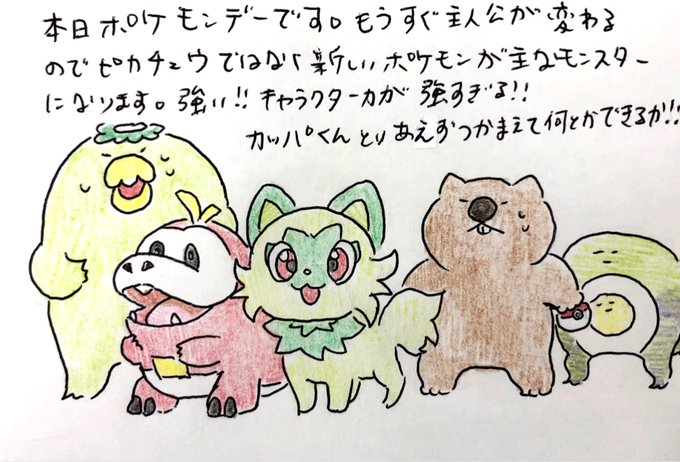 本日ポケモンデーです。もうすぐ主人公が変わる
のでピカチュウではなく新しいポケモンが主なモンスター
になります。強い!!キャラクターカが強すぎる!!
カッパくんとりあえずつかまえて何とかできるか!!